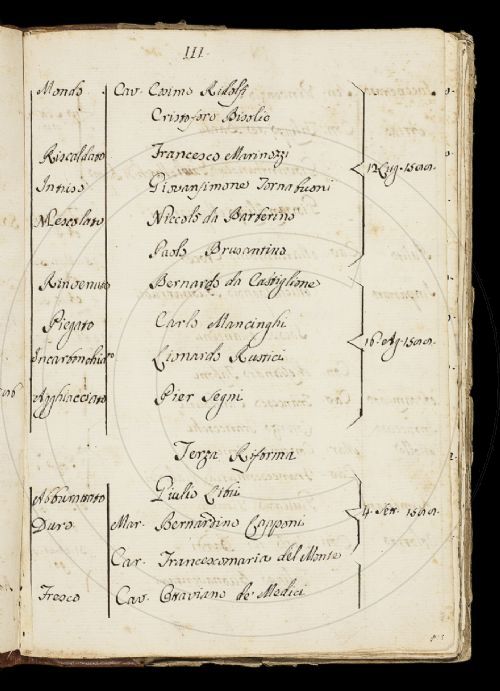 III
Mondo Cav. Cosimo Ridolfi
Cristoforo
Riscaldato Francesco Marinozzi
Intriso Giovansimone Tornabuoni
12 Lug. 1589.
Mescolato Niccolò da Barberino
Paolo Brusantino
Rinvenuto Bernardo da Castiglione
Piegato Carlo Mancinghi
16. Ag. 1589.
Lionardo Rustici
Agghiacciato Pier Segni
Terza Riforma
Giulio Libri
Duro Mar. Bernardino Capponi
4. Sett. 1589.
Car. Francescomaria del Monte
Fresco Cav. Ottaviano de' Medici